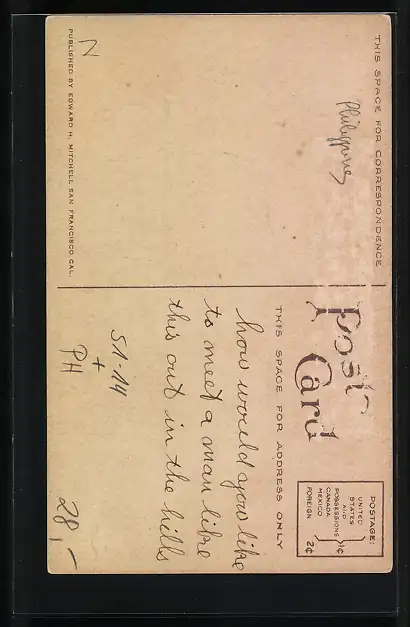 THIS SPACE FOR CORRESPONDENCE
Philippines
N
PUBLISHED BY EDWARD H. MITCHELL SAN FRANCISCO, CAL.
Post Card
POSTAGE:
UNITED STATES AND POSSESSIONS CANADA MEXICO 1¢
FOREIGN 2¢
THIS SPACE FOR ADDRESS ONLY
how would you like
to meet a man like
this out in the hills
S1-14
+
PH
28,-